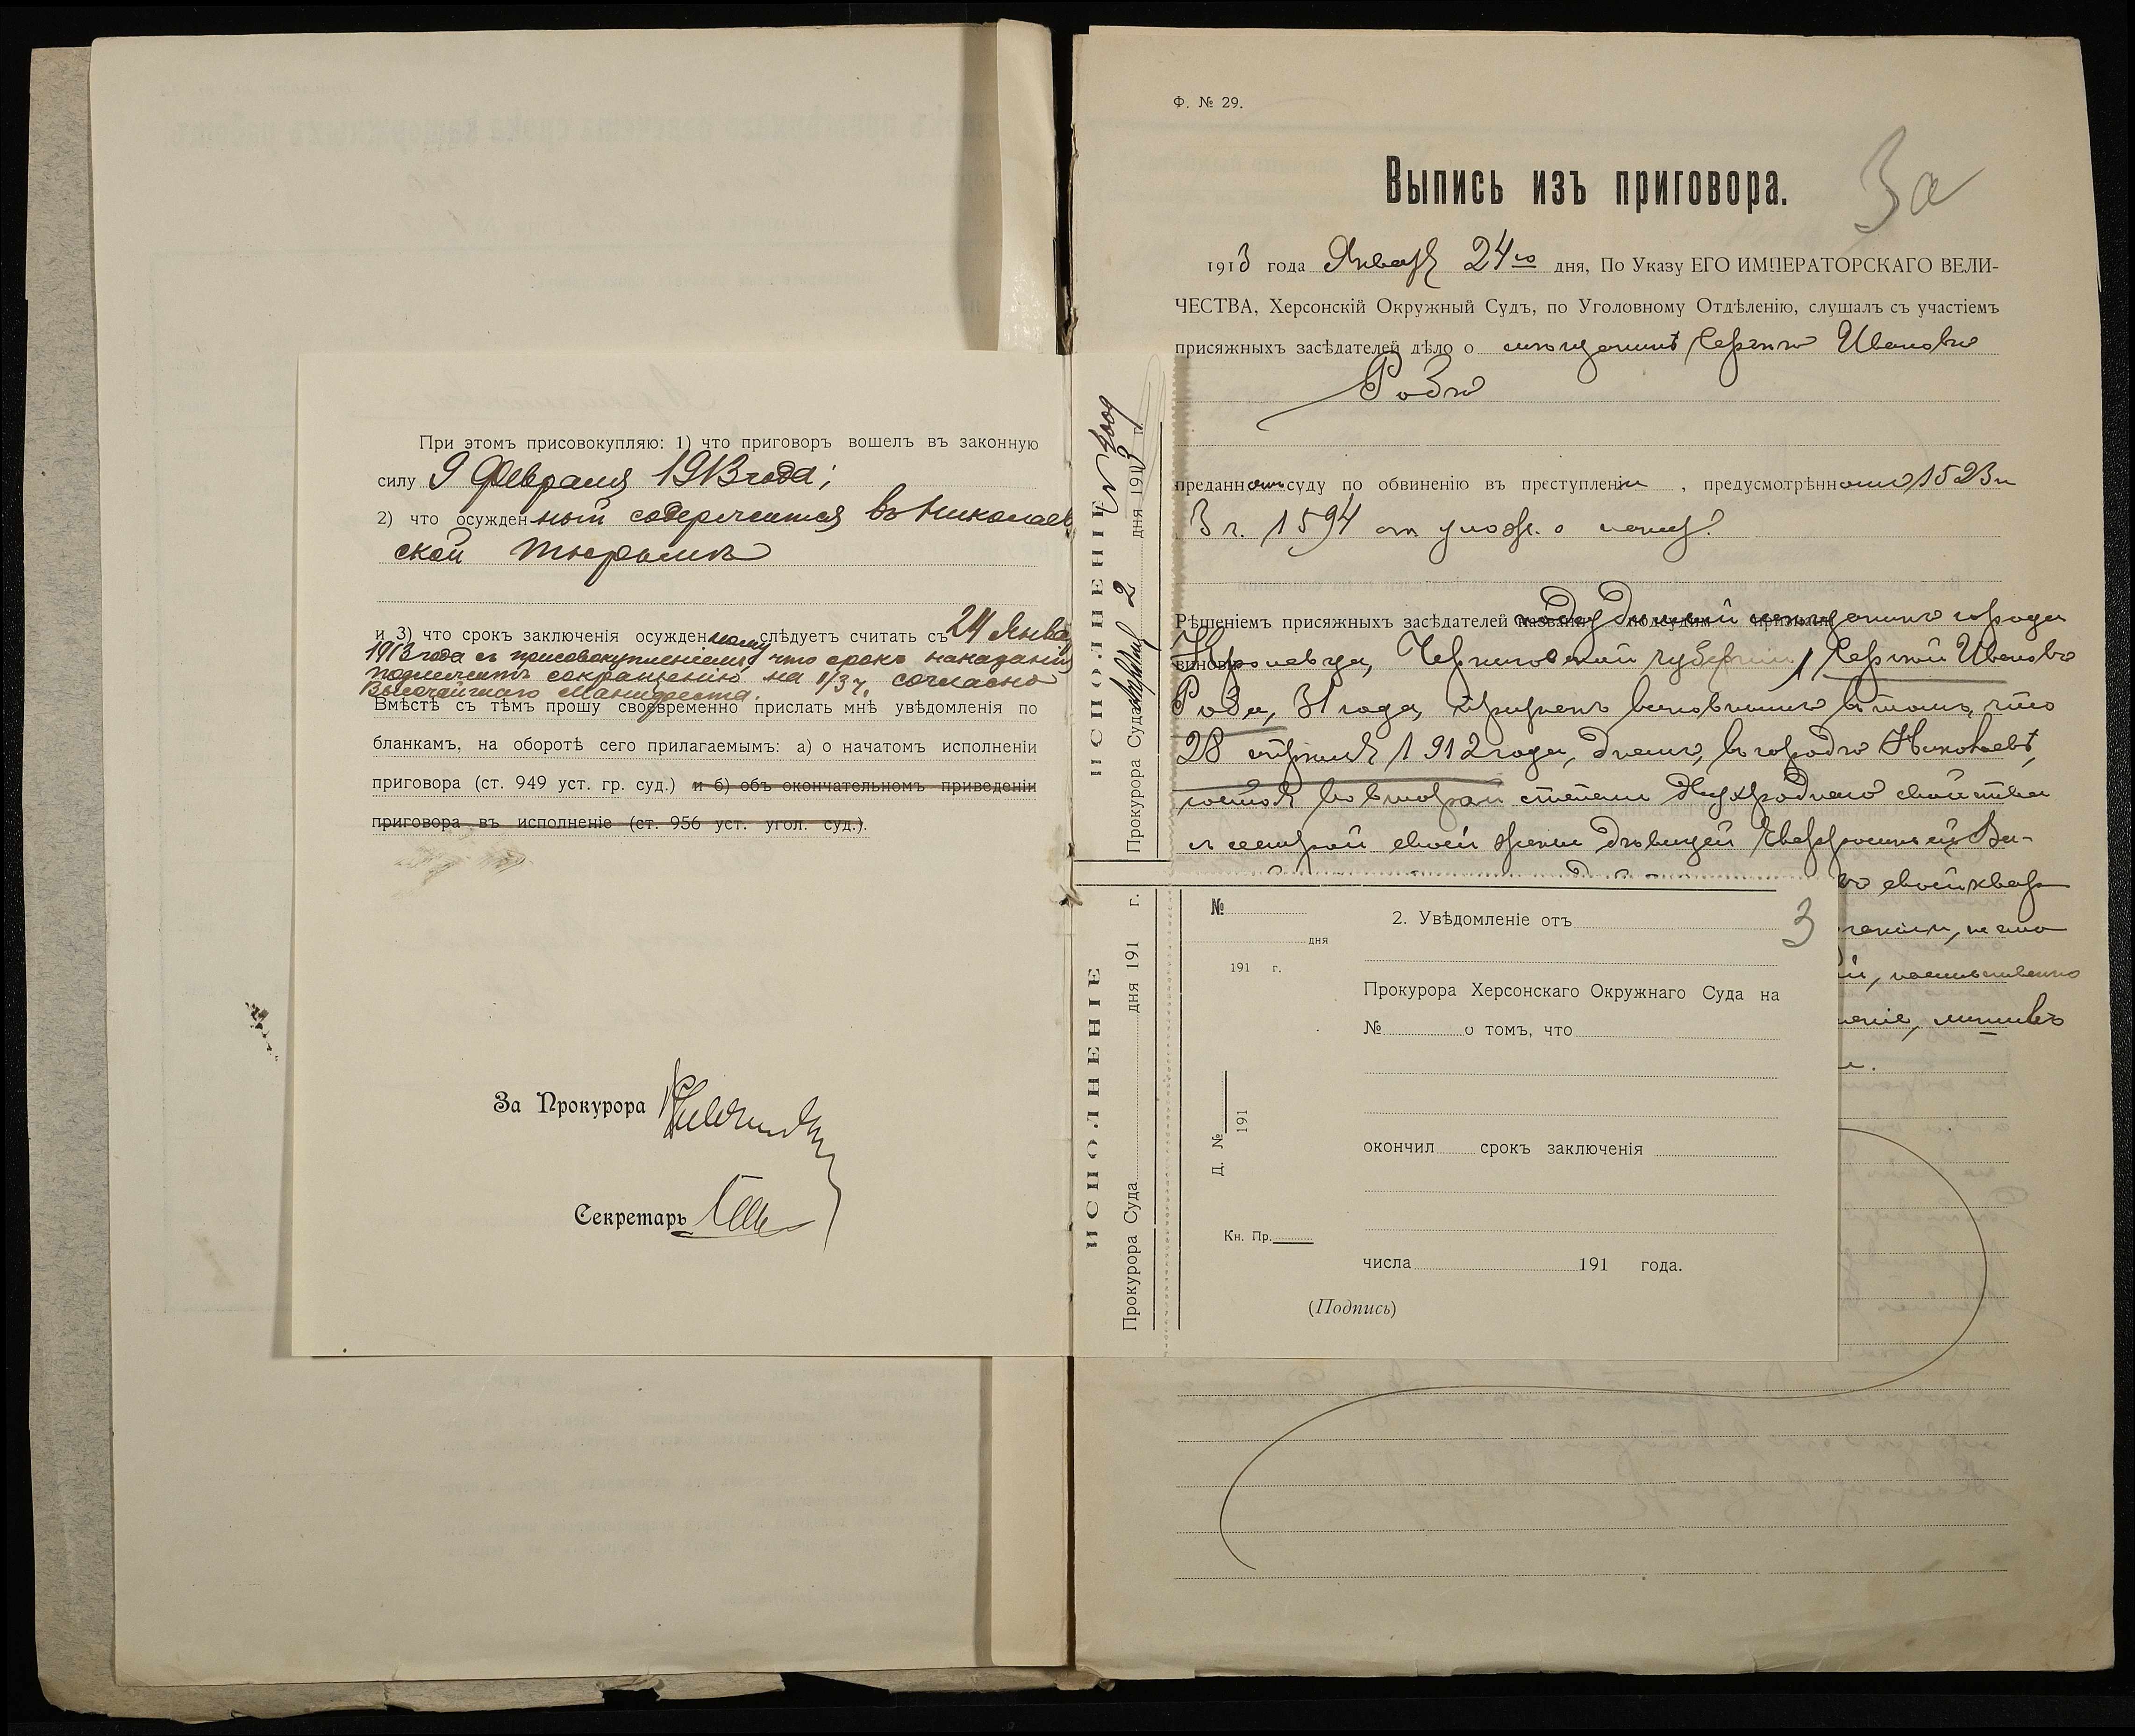 При этомъ присовокупляю: 1) что приговоръ вошелъ въ законную
силу 9 Февраля 1913 года;
2) что осужденный содержится въ Николаев
ской тюрьмѣ
и 3) что срокъ заключенія осужденному слѣдуетъ считать съ 24 Января
1913 года съ присовокупленіемъ что срокъ наказанія
подлежитъ сокращенію на 1/3 ч. согласно
Высочайшаго Манифеста.
Вмѣстѣ съ тѣмъ прошу своевременно прислать мнѣ увѣдомленія по
бланкамъ, на оборотѣ сего прилагаемымъ: а) о начатомъ исполненіи
приговора (ст. 949 уст. гр. суд.) и б) объ окончательномъ приведеніи
приговора въ исполненіе (ст. 956 уст. угол. суд.).
За Прокурора
Секретарь
ИСПОЛНЕНІЕ
Прокурора Суда 2 дня 1913 г.
ИСПОЛНЕНІЕ
Прокурора Суда дня 191 г.
Ф. № 29.
Выпись изъ приговора.
3а
1913 года Января 24го дня, По Указу ЕГО ИМПЕРАТОРСКАГО ВЕЛИ-
ЧЕСТВА, Херсонскій Окружный Судъ, по Уголовному Отдѣленію, слушалъ съ участіемъ
присяжныхъ засѣдателей дѣло о мѣщанинѣ Сергѣѣ Ивановѣ
преданномъ суду по обвиненію въ преступленіи, предусмотрѣнномъ 1523 и
3 ч. 1594 ст улож. о наказ.
Рѣшеніемъ присяжныхъ засѣдателей подсудимый мѣщанинъ города
Кролевца, Черниговской губерніи, Сергѣй Ивановъ
31 года, признанъ виновнымъ въ томъ, что
28 1912 года, днемъ, въ городѣ Николаевѣ,
состоя во второй степени двухроднаго свойства
съ сестрой своей жены дѣвицей
своей квар
насильственно
№
дня
191 г.
Д. №
191
Кн. Пр.
2. Увѣдомленіе отъ
3
Прокурора Херсонскаго Окружнаго Суда на
№ о томъ, что
окончил срокъ заключенія
числа 191 года.
(Подпись)